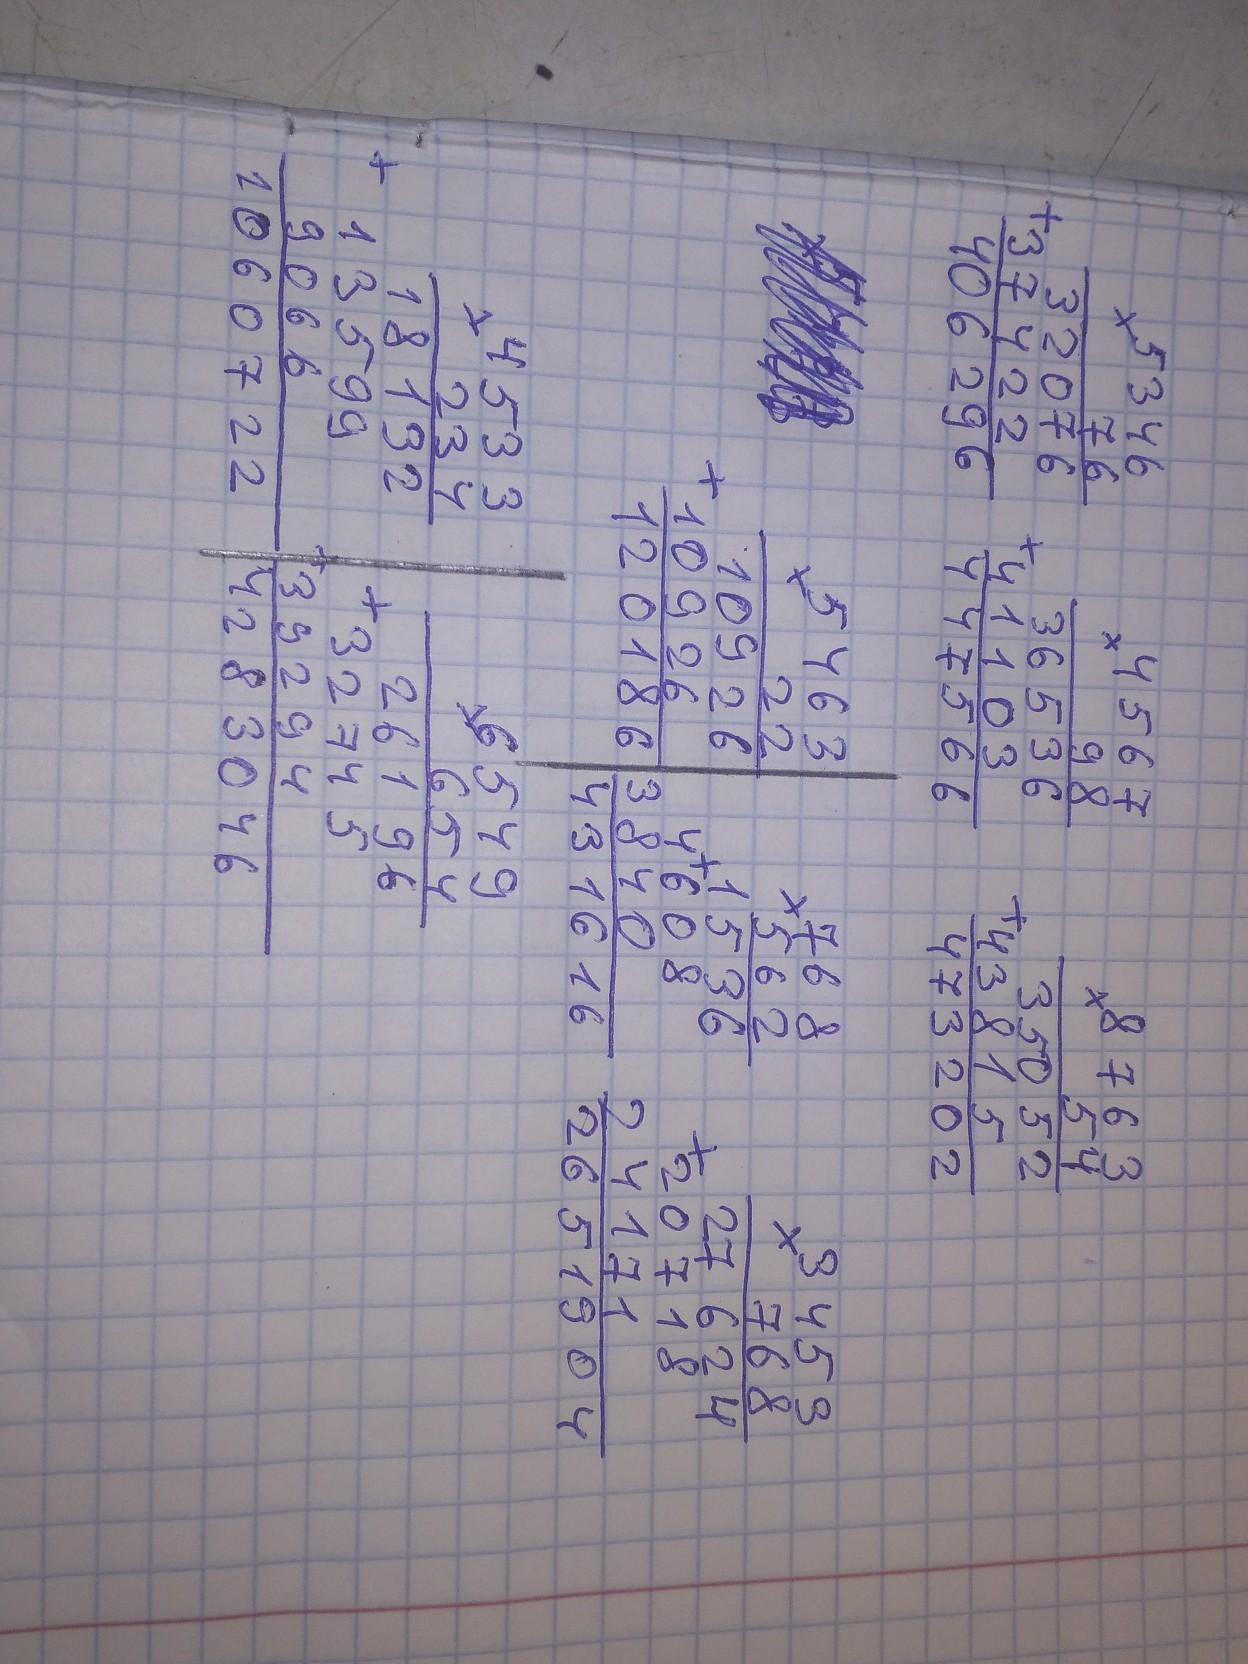 ×5346
76
32076
+37422
406296
×4567
98
36536
+41103
447566
×8763
54
35052
+43815
473202
×5463
22
10926
+10926
120186
×768
562
1536
+4608
3840
431616
×3453
768
27624
+20718
24171
2651904
×4533
234
18132
+13599
9066
1060722
×6549
654
26196
+32745
+39294
4283046